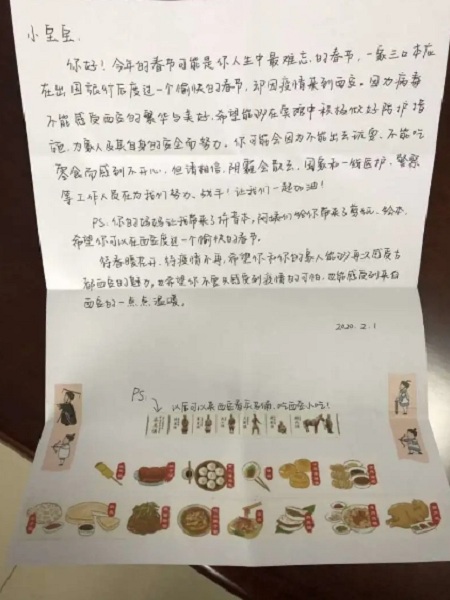 小皇皇:
你好!今年的春节可能是你人生中最难忘的春节,一家三口本应
在出国旅行后度过一个愉快的春节,却因疫情来到西安。因为病毒
不能感受西安的繁华与美好,希望能够在余暇中积极做好防护措
施,为家人及其自身的安全而努力。你可能会因为不能出去玩耍、不能吃
零食而感到不开心,但请相信,阴霾会散去,国家和一线医护、警察
等工作人员在为我们努力、战斗!让我们一起加油!
PS:你的妈妈让我带来了拼音本,阿姨们给你带来了剪纸、绘本,
希望你可以在西安度过一个愉快的春节。
待春暖花开,待疫情不再,希望你和你的家人能够再次感受古
都西安的魅力。也希望你不要只感受到疫情的可怕,也能感受到来自
西安的一点点温暖。
2020.2.1
PS:
以后可以来西安看兵马俑,吃西安小吃!